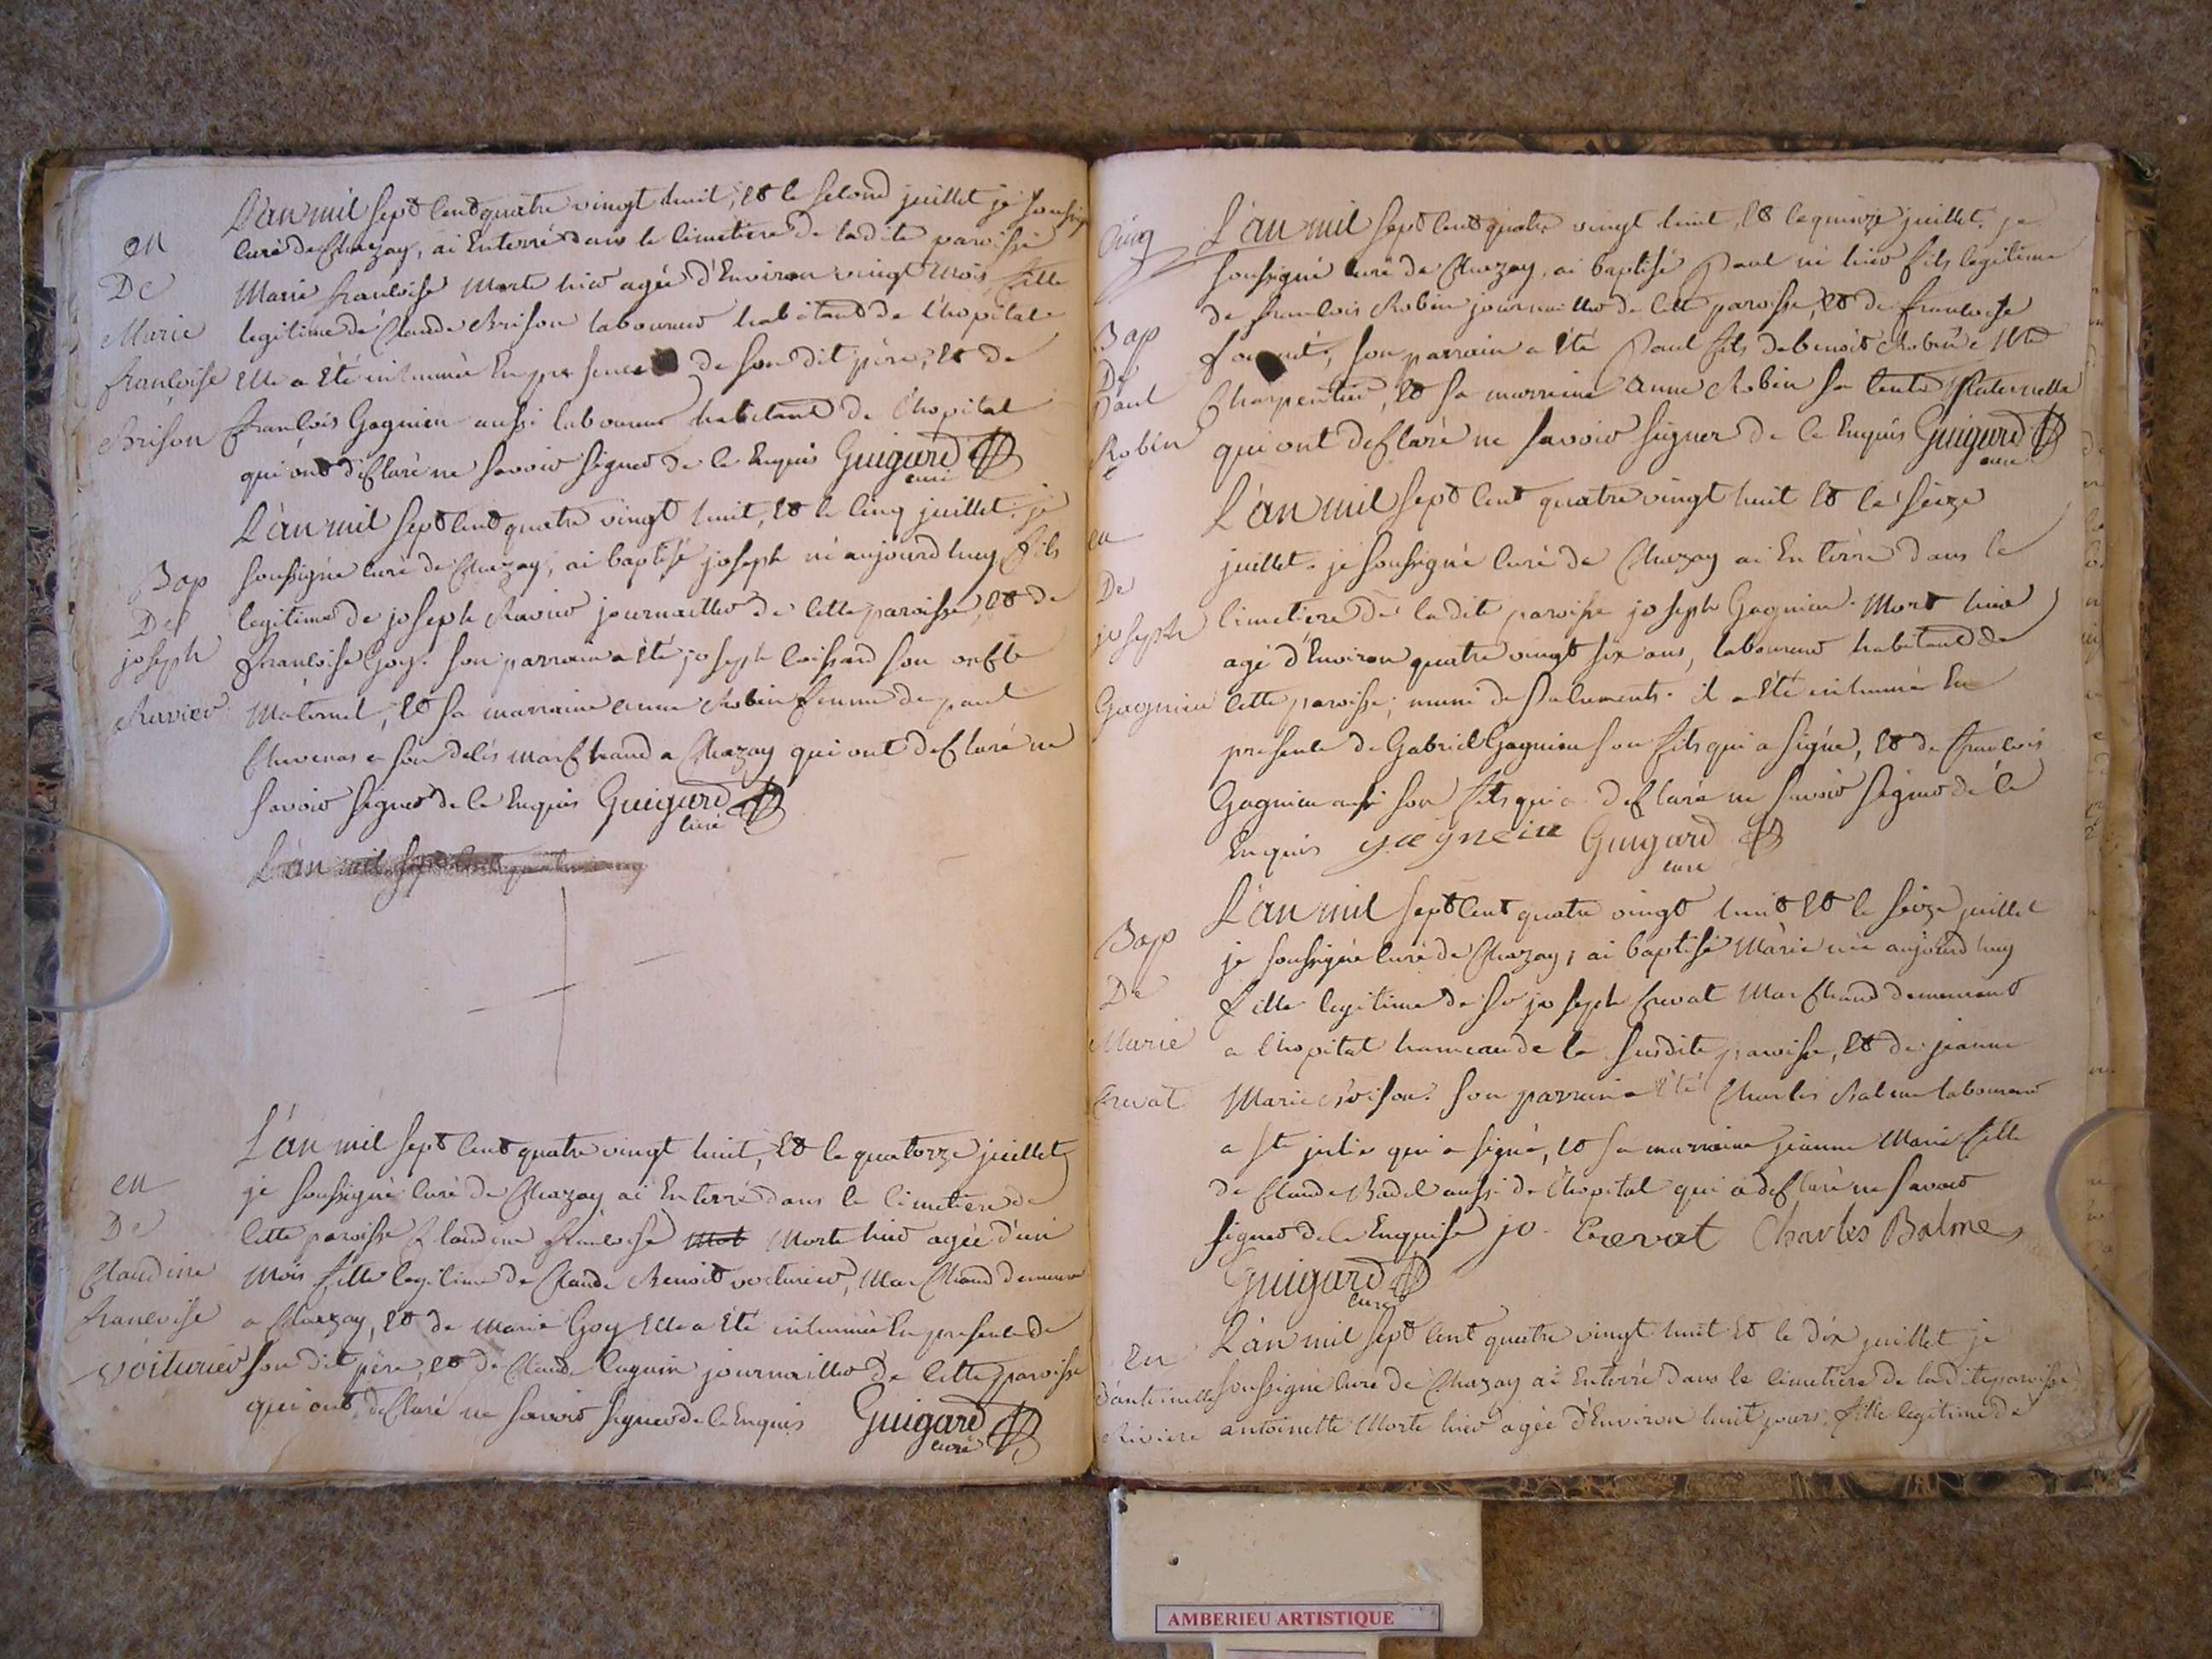 L'an mil sept cent quatre vingt huit, et le second juillet je soussig
curé de Chazay, ai enterré dans le cimetiere de ladite paroisse
Marie françoise morte hier agée d'environ vingt mois, fille
legitime de Claude Brison laboureur habitant de l'hopital
Elle a été inhumée en presence de son dit pére, et de
françois Gagnieu aussi laboureur habitant de l'hopital
qui ont declaré ne savoir signer de ce enquis Guigard
curé
en
De
Marie
françoise
Brison
L'an mil sept cent quatre vingt huit, et le cinq juillet je
soussigné curé de Chazay, ai baptisé joseph né aujourd huy, fils
legitime de joseph Ravier journaillier de cette paroisse, et de
françoise Goy. son parrain a été joseph son oncle
Maternel, et sa marraine anne Robin femme de paul
marchand a Chazay qui ont declaré ne
savoir signer de ce enquis Guigard
curé
Bap
De
joseph
Ravier
L'an mil sept cent
L'an mil sept cent quatre vingt huit, et le quatorze juillet
je soussigné curé de Chazay ai enterré dans le cimetiere de
cette paroisse Claudine françoise morte hier agée d'un
Mois fille legitime de Claude Benoit voiturier, Marchand
a Chazay, et de Marie Goy Elle a été inhumée en presence de
son dit pére, et de Claude journaillier de cette paroisse
qui ont declaré ne savoir signer de ce enquis Guigard
curé
en
De
Claudine
francoise
Voiturier
cinq
L'an mil sept cent quatre vingt huit, et le quinze juillet. je
soussigné curé de Chazay, ai baptisé Paul né hier fils legitime
de francois Robin journaillier de cette paroisse, et de francoise
son parrain a été Paul fils de benoit Robin
Charpentier, et sa marraine Anne Robin sa tante Paternelle
qui ont declaré ne savoir signer de ce enquis Guigard
curé
Bap
De
Paul
Robin
L'an mil sept cent quatre vingt huit et le seize
juillet. je soussigné curé de Chazay ai enterré dans le
cimetiere de ladite paroisse joseph Gagnieu. Mort hier
agé d'environ quatre vingt six ans, laboureur habitant de
cette paroisse; muni de Sacrements. il a été inhumé en
presence de Gabriel Gagnieu son fils qui a signé, et de francois
Gagnieu aussi son fils qui a declaré ne savoir signer de ce
enquis gagneiu Guigard
curé
en
De
joseph
Gagnieu
L'an mil sept cent quatre vingt huit et le seize juillet
je soussigné curé de Chazay, ai baptisé Marie née aujourd huy
fille legitime de Sr joseph Crevat Marchand demeurant
a l'hopital hameau de la susdite paroisse, et de jeanne
Marie Brison. son parrain a été Charles Balme laboureur
a ste julie qui a signé, et sa marraine jeanne Marie fille
de Claude Badel aussi de l'hopital qui a declaré ne savoir
signer de ce enquise jo Crevat Charles Balme
Guigard
curé
Bap
De
Marie
Crevat
L'an mil sept cent quatre vingt huit et le dix juillet je
soussigné curé de Chazay ai enterré dans le cimetiere de ladite paroisse
antoinette Morte hier agée d'environ huit jours, fille legitime de
en
d'antoinette
Riviere
AMBERIEU ARTISTIQUE